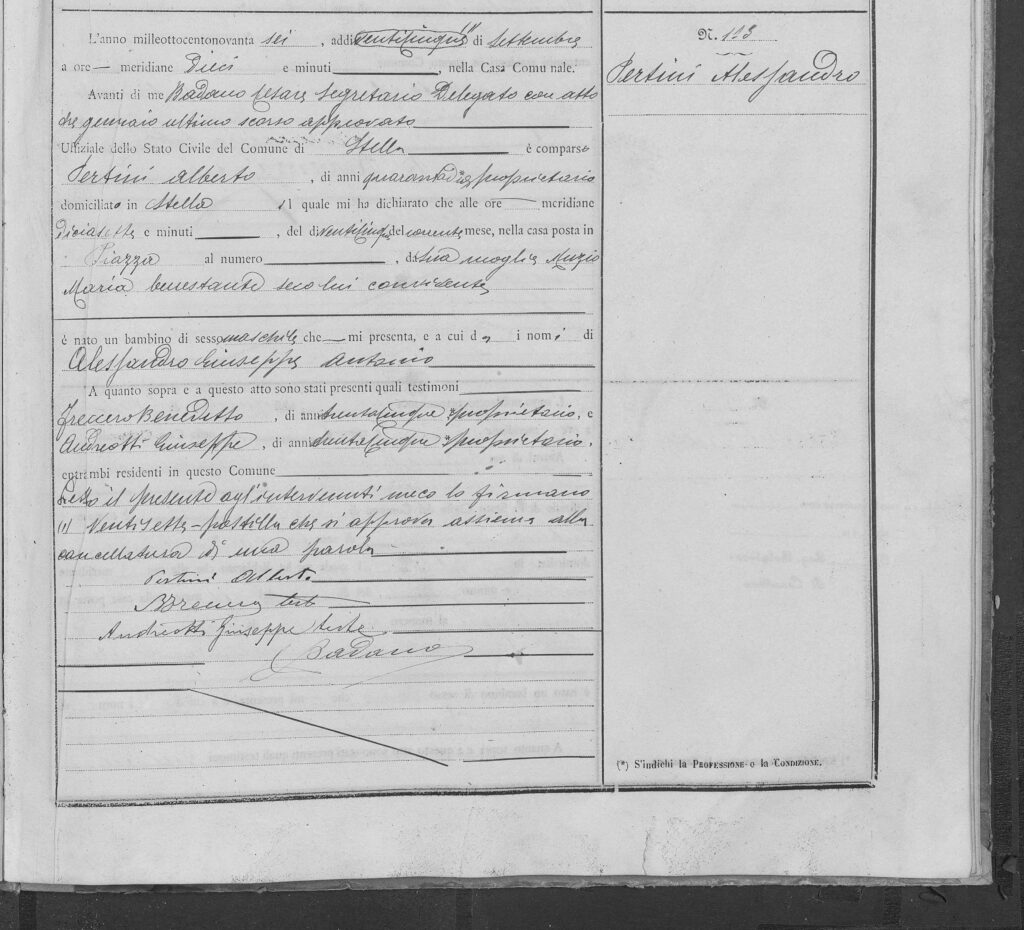 L'anno milleottocentonovanta sei, addì venticinque (1) di Settembre
a ore — meridiane Dieci e minuti, nella Casa Comunale.
Avanti di me Badano Cesare Segretario Delegato con atto
gennaio ultimo scorso approvato
Uffiziale dello Stato Civile del Comune di Stella è comparso
Pertini Alberto, di anni proprietario
domiciliato in Stella il quale mi ha dichiarato che alle ore — meridiane
Diciasette e minuti, del dì venticinque del corrente mese, nella casa posta in
Piazza al numero, da sua moglie Muzio
Maria benestante seco lui convivente
è nato un bambino di sesso maschile che — mi presenta, e a cui dà i nomi di
Alessandro Giuseppe Antonio
A quanto sopra e a questo atto sono stati presenti quali testimoni
Freccero Benedetto, di anni trentacinque proprietario, e
Andreotti Giuseppe, di anni proprietario,
entrambi residenti in questo Comune
Letto il presente agl'intervenuti meco lo firmano
(1) Ventisette - postilla che si approva assieme alla
cancellatura di una parola
Pertini Alberto
teste
Andreotti Giuseppe teste
Badano
N. 113
Pertini Alessandro
(*) S'indichi la Professione o la Condizione.